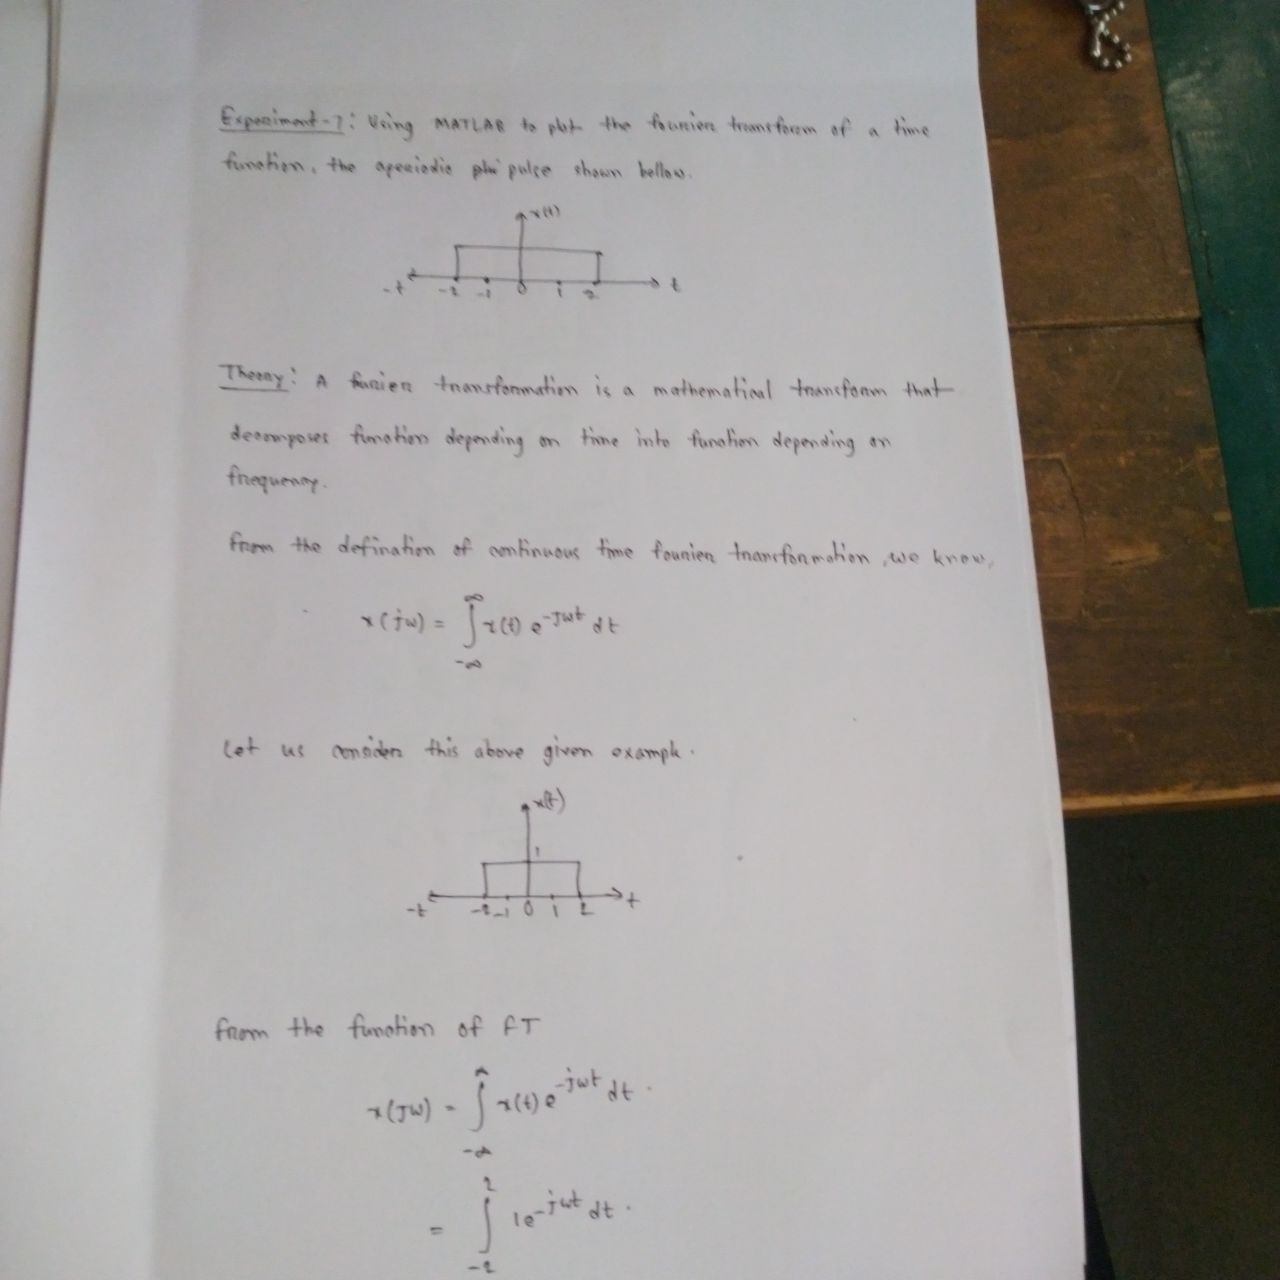 Experiment-7: Using MATLAB to plot the fourier transform of a time
function, the aperiodic pulse shown bellow.
x(t)
-t -2 -1 0 1 2 t
Theory: A furier transformation is a mathematical transform that
decomposes function depending on time into function depending on
frequency.
From the defination of continuous time fourier transformation, we know,
x(jw) = ∫ x(t) e^-jwt dt
∞
-∞
Let us consider this above given example.
x(t)
1
-t -2 -1 0 1 2 t
From the function of FT
x(jw) = ∫ x(t) e^-jwt dt.
∞
-∞
= ∫ 1e^-jwt dt.
2
-2